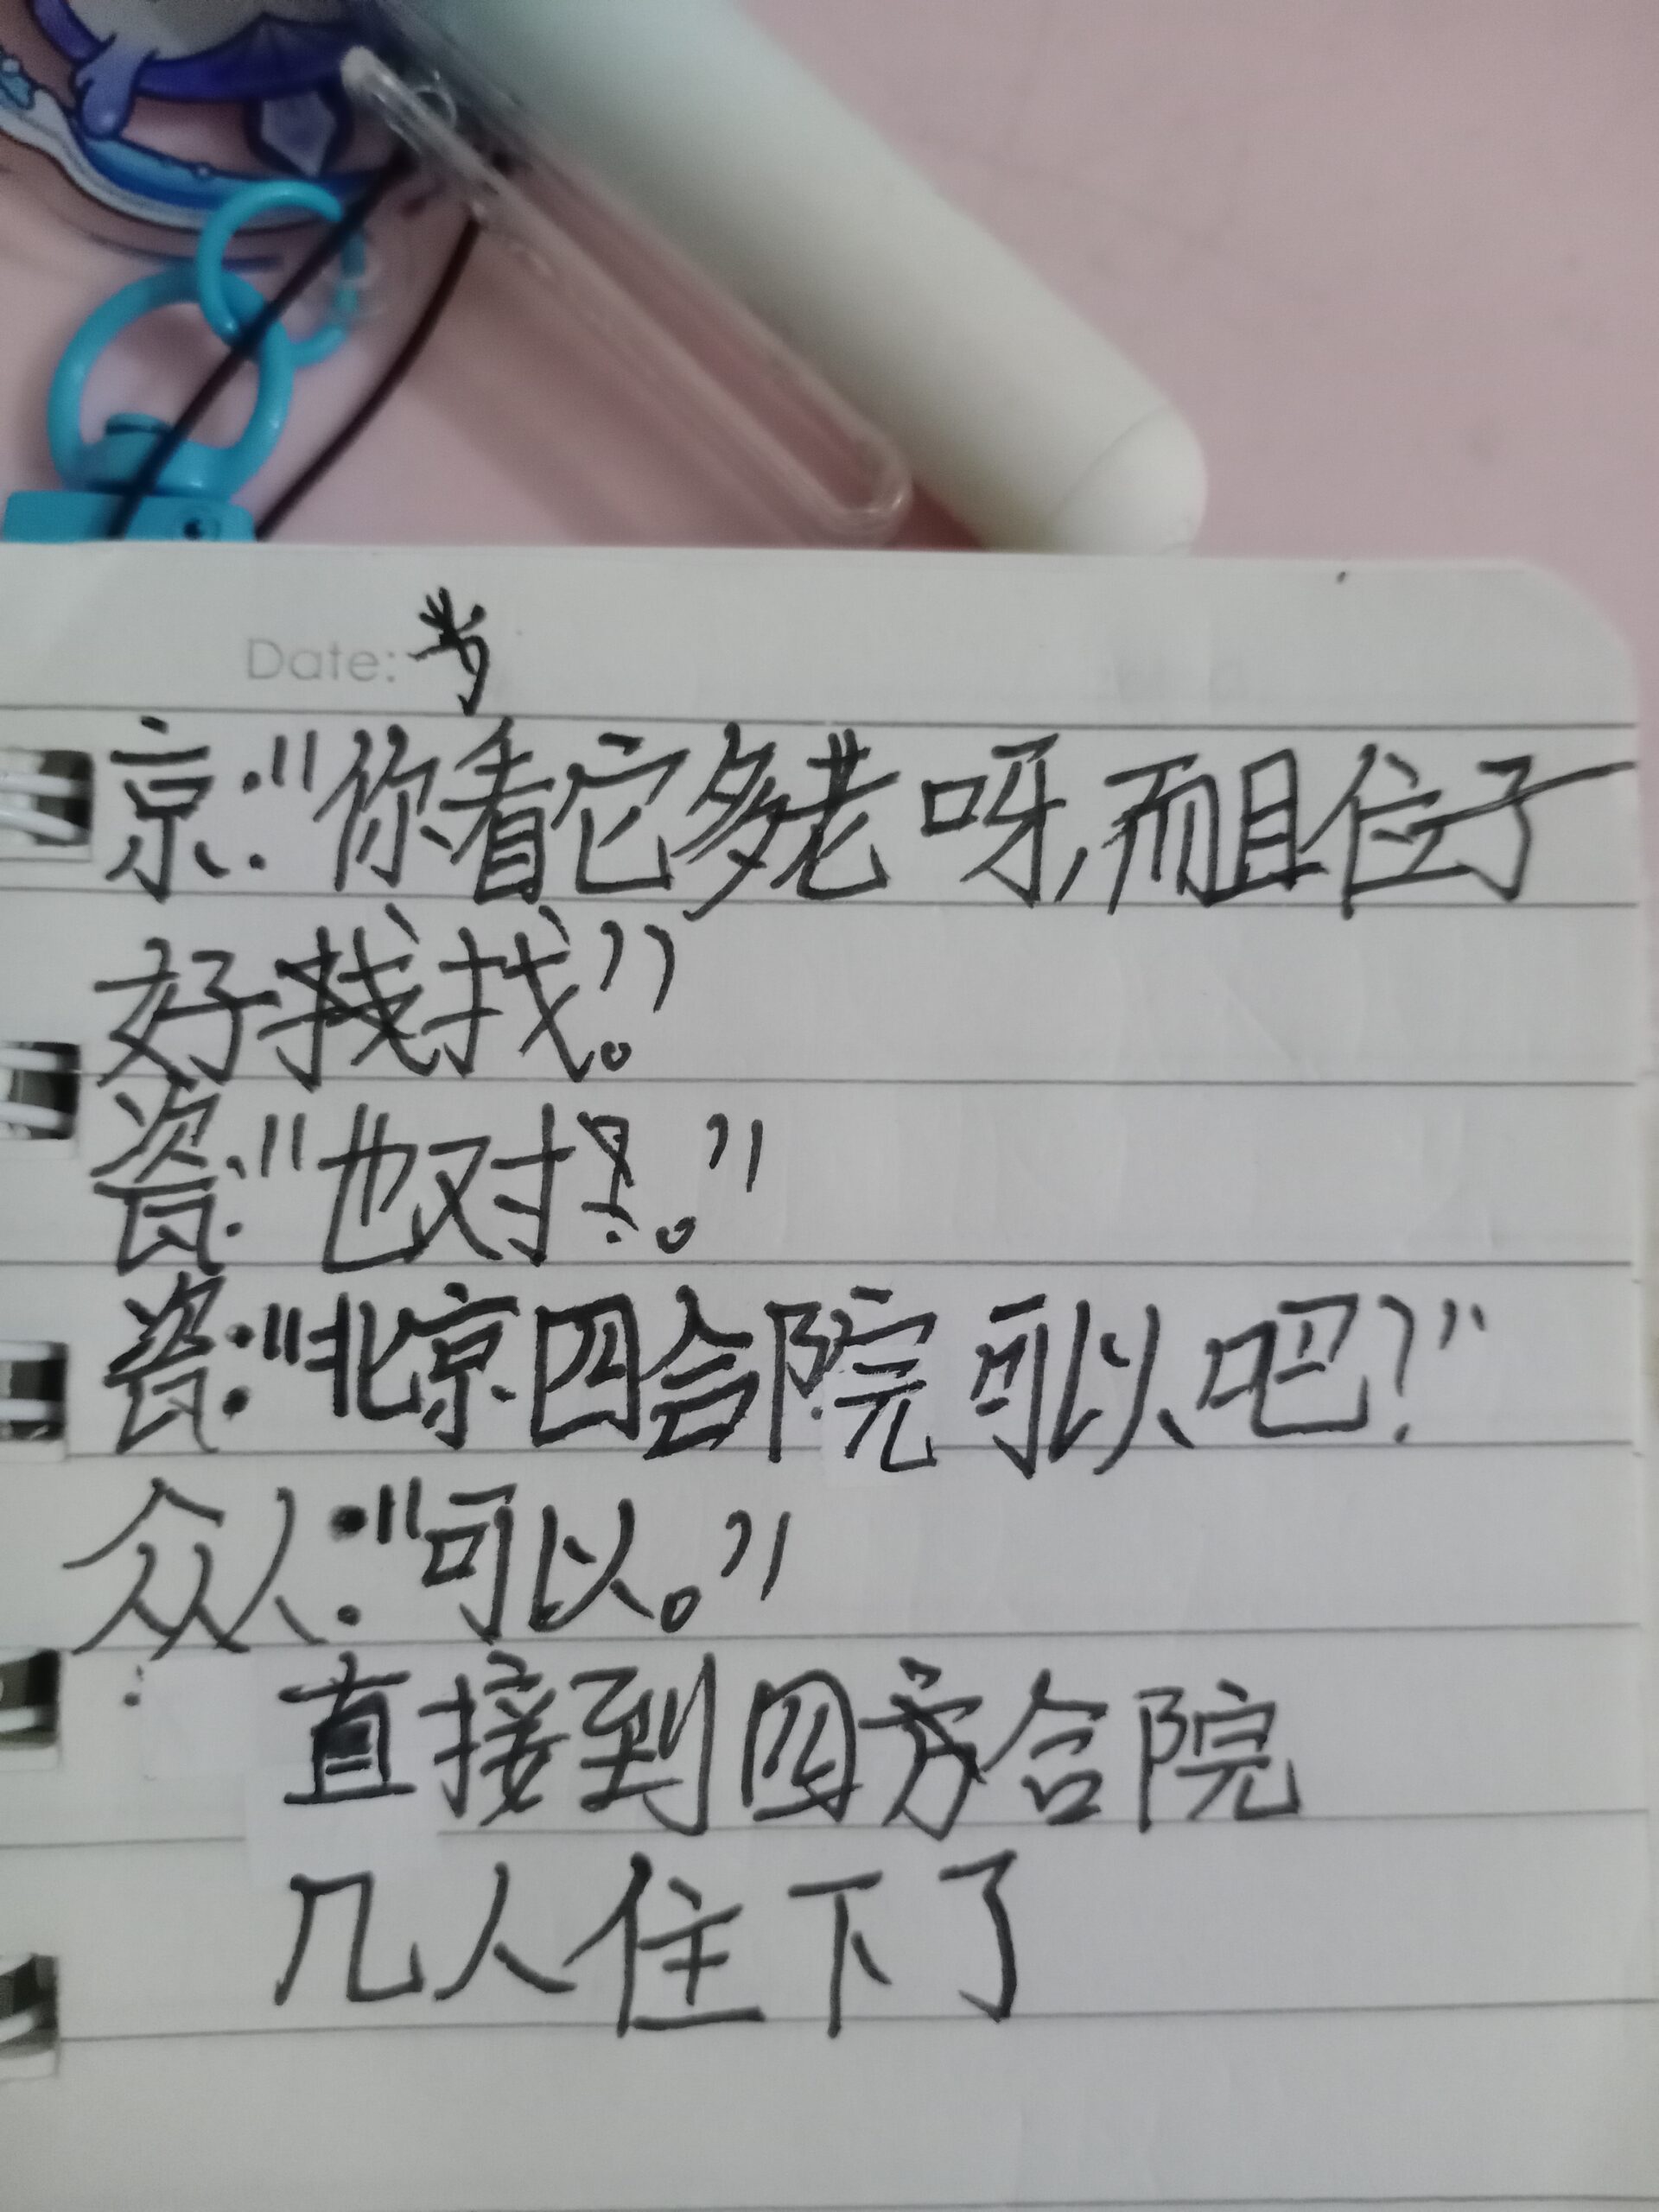 Date:
京:“你看它多老呀,而且位子
好找找。”
瓷:“也对。”
瓷:“北京四合院可以吧?”
众人:“可以。”
直接到四合院
几人住下了